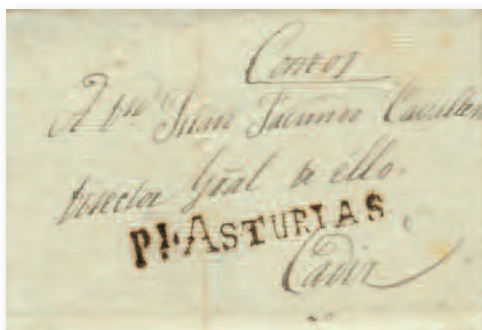 Correos
A Dn Juan Facundo
Director Gral de ellos.
Pl.ASTURIAS
Cadiz